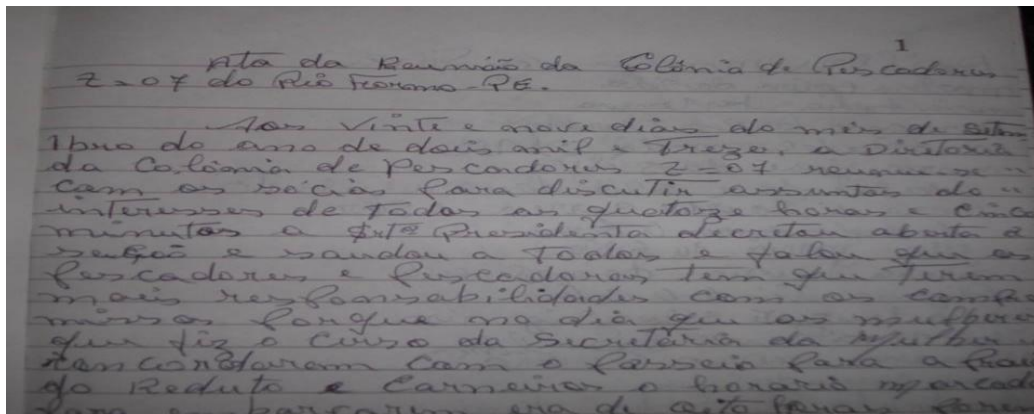 1
Ata da Reunião da Colônia de Pescadores
Z=07 do Rio Formoso-PE.
Aos vinte e nove dias do mês de setem
1bro do ano de dois mil e Treze. a Diretoria
da Colônia de Pescadores Z=07 reuniu-se
com os sócios para discutir assuntos do
interesses de Todos as quatorze horas e cinco
minutos a Presidenta decretou aberta a
e saudou a Todos e falou que os
Pescadores e Pescadoras tem que Terem
mais responsabilidades com os compr
missos porque no dia que as mulheres
que fiz o curso da Secretaria da Mulher
com o Passeio para a Praia
do Reduto e Carneiros o horario marcado
para era de oito horas